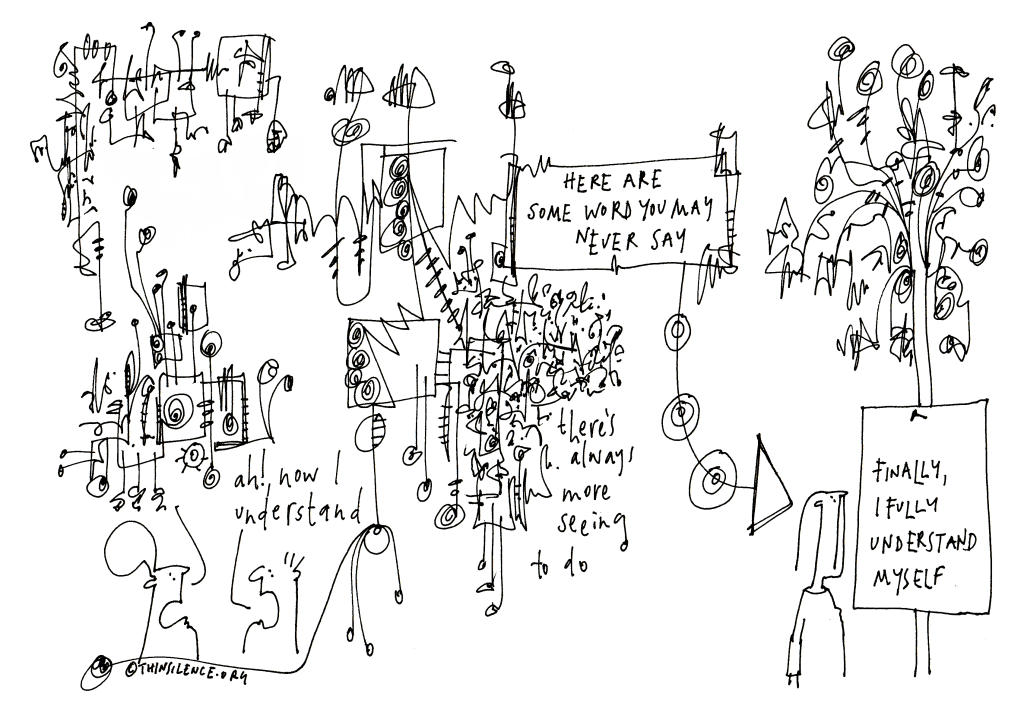 HERE ARE
SOME WORD YOU MAY
NEVER SAY
ah!, now I
understand
there's
always
more
seeing
to do
FINALLY,
I FULLY
UNDERSTAND
MYSELF
©THINSILENCE.ORG